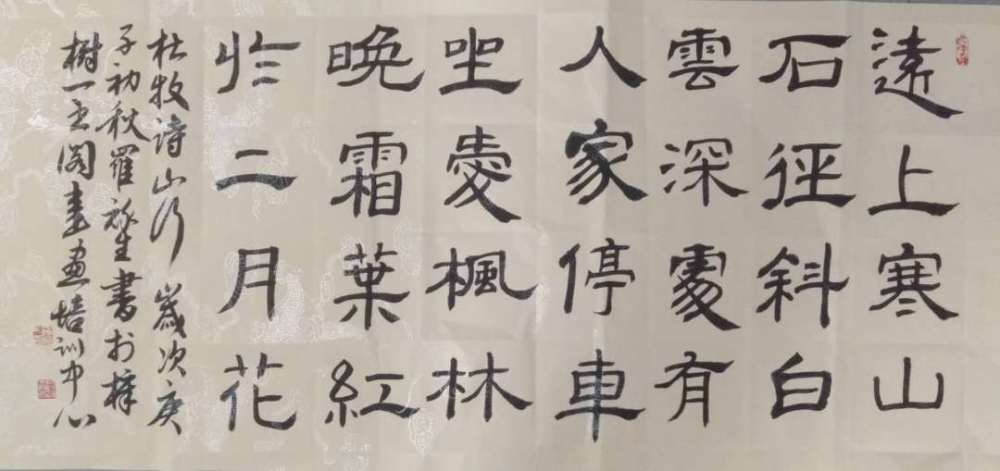 遠上寒山
石径斜白
雲深處有
人家停車
坐愛楓林
晚霜葉紅
於二月花
杜牧诗山行 歲次庚
子初秋羅生書於樟
樹一阁書画培训中心